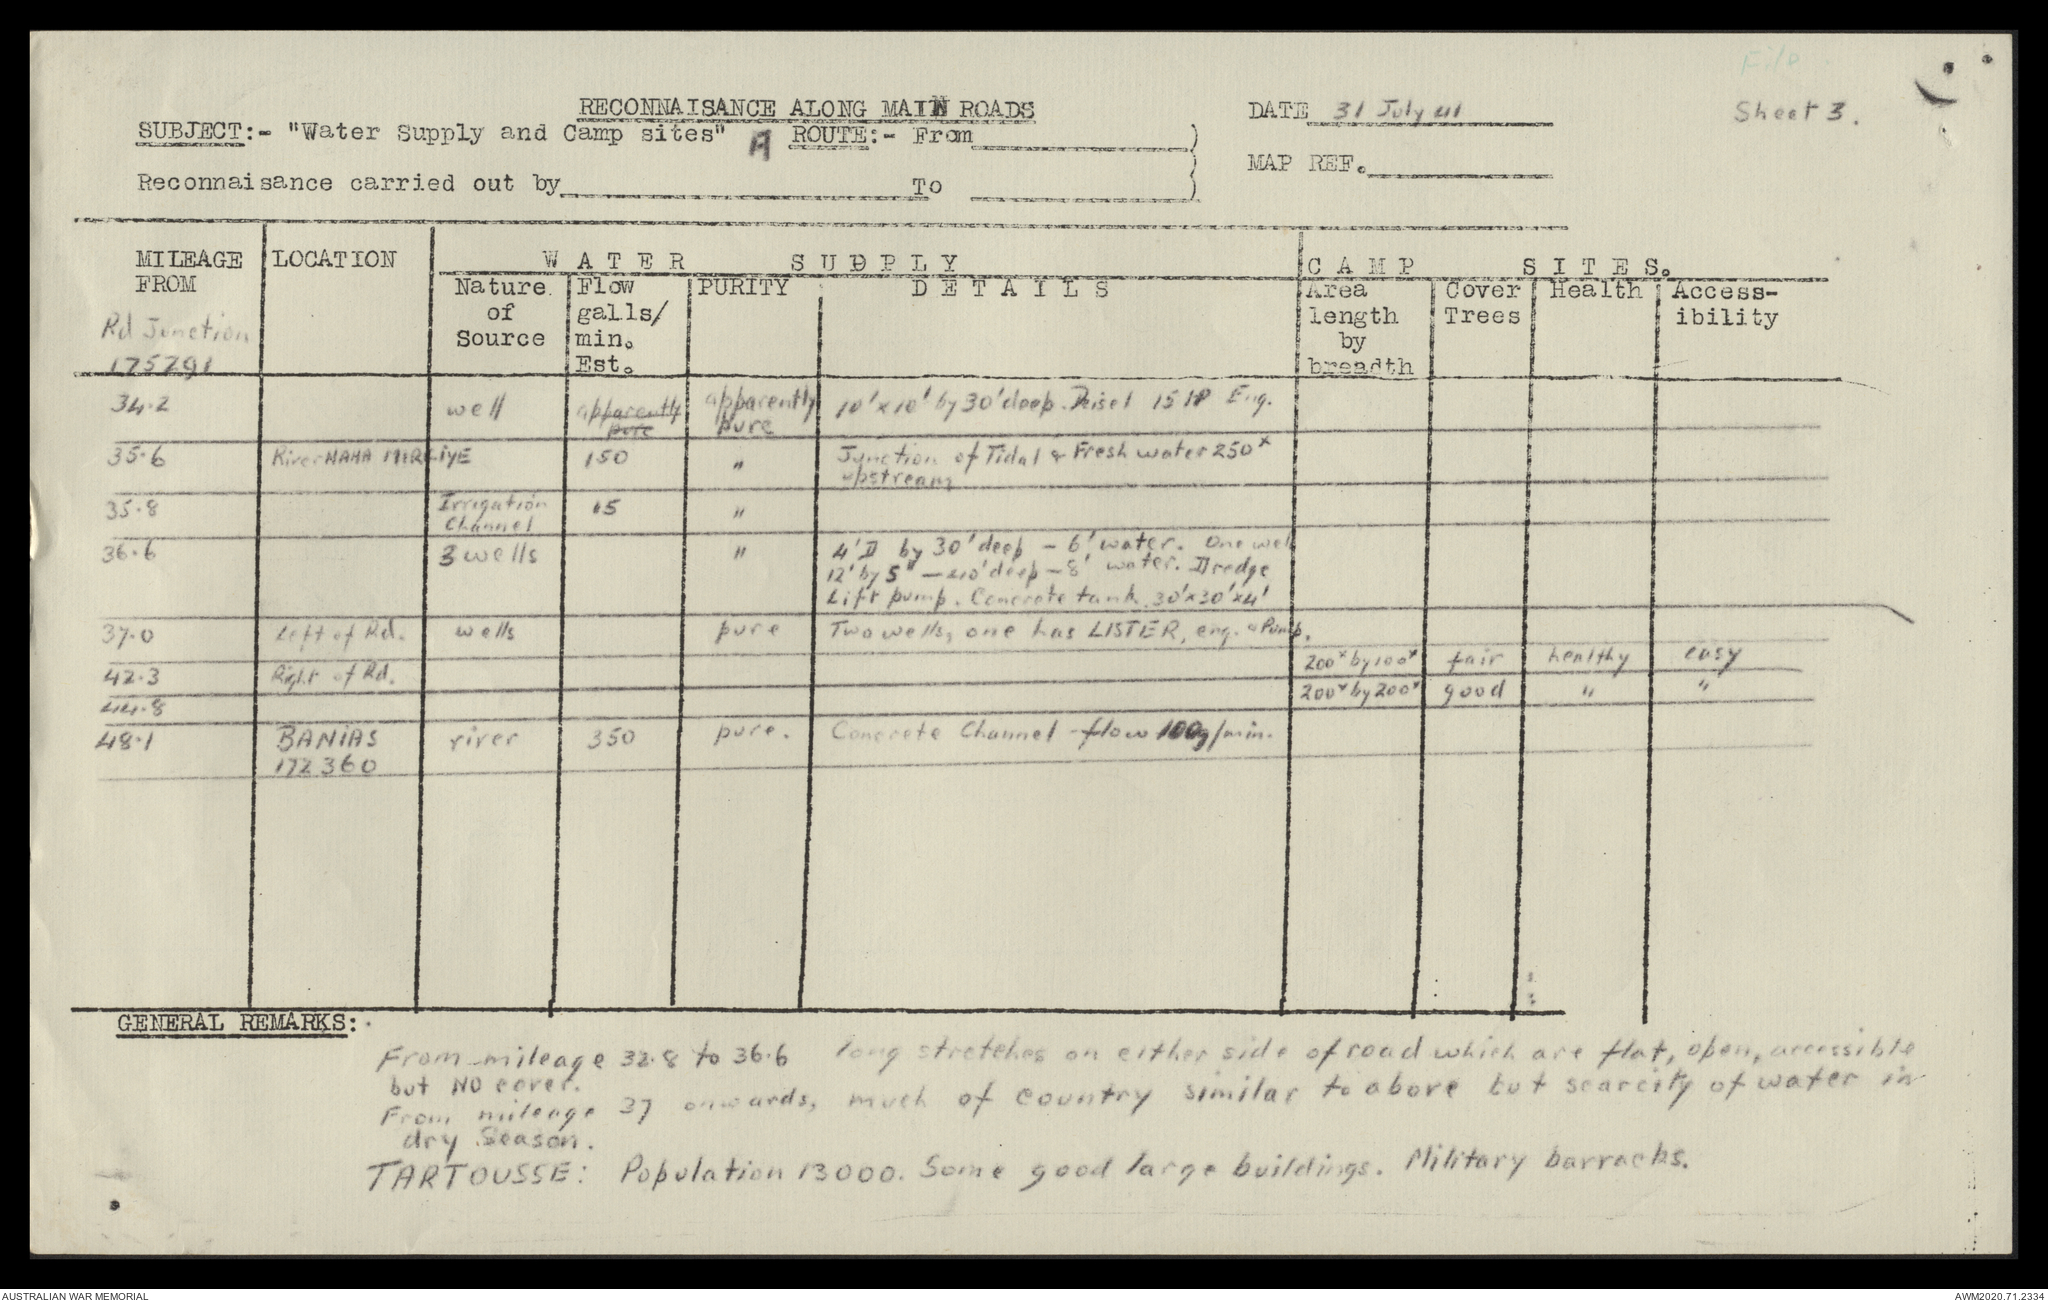 File
RECONNAISANCE ALONG MAIN ROADS
DATE 31 July 41
Sheet 3.
SUBJECT:- "Water Supply and Camp sites" A ROUTE:- From
MAP REF.
Reconnaisance carried out by To
MILEAGE FROM
Rd Junction
175791
LOCATION
WATER SUPPLY
CAMP SITES.
Nature of Source
Flow galls/ min. Est.
PURITY
DETAILS
Area length by breadth
Cover Trees
Health
Access-ibility
34.2 well apparently pure apparently pure 10' x 10' by 30' deep. Deisel 15 HP Eng.
35.6 River NAHA 150 " Junction of Tidal & Fresh water 250x
upstream
35.8 Irrigation Channel 15 "
36.6 3 wells " 4' D by 30' deep - 6' water. One well
12' by 5" - 40' deep - 8' water. Dredge
Lift pump. Concrete tank 30'x30'x4'
37.0 Left of Rd. wells pure Two wells, one has LISTER, eng. & Pump.
42.3 Right of Rd. 200x by 100x fair healthy easy
44.8 200x by 200x good " "
48.1 BANIAS river 350 pure. Concrete Channel - flow 100g/min.
172360
GENERAL REMARKS:
From mileage 32.8 to 36.6 long stretches on either side of road which are flat, open, accessible
but NO cover.
From mileage 37 onwards, much of country similar to above but scarcity of water in
dry season.
TARTOUSSE: Population 13000. Some good large buildings. Military barracks.
AUSTRALIAN WAR MEMORIAL
AWM2020.71.2334